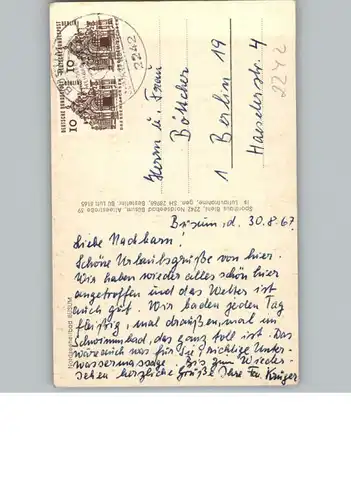 DEUTSCHE BUNDESPOST
10
DEUTSCHE BUNDESPOST
10
2242
Herrn u. Frau
Böttcher
1 Berlin 19
Haeselerstr. 4
2242
Sporthaus Giehl, 2242 Nordseebad Büsum, Alleestraße 59
Luftaufnahme, gen. SH
Nordseeheilbad BÜSUM
Büsum, d. 30.8.67.
Liebe Nachbarn!
Schöne Urlaubsgrüße von hier.
Wir haben wieder alles schön hier
angetroffen und das Wetter ist
auch gut. Wir baden jeden Tag
fleißig, mal draußen, mal im
Schwimmbad, das ganz toll ist. Das
wäre auch was für Sie, richtige Unter-
wassermassage. Bis zum Wieder-
sehen herzliche Grüße Ihre Fam. Krüger